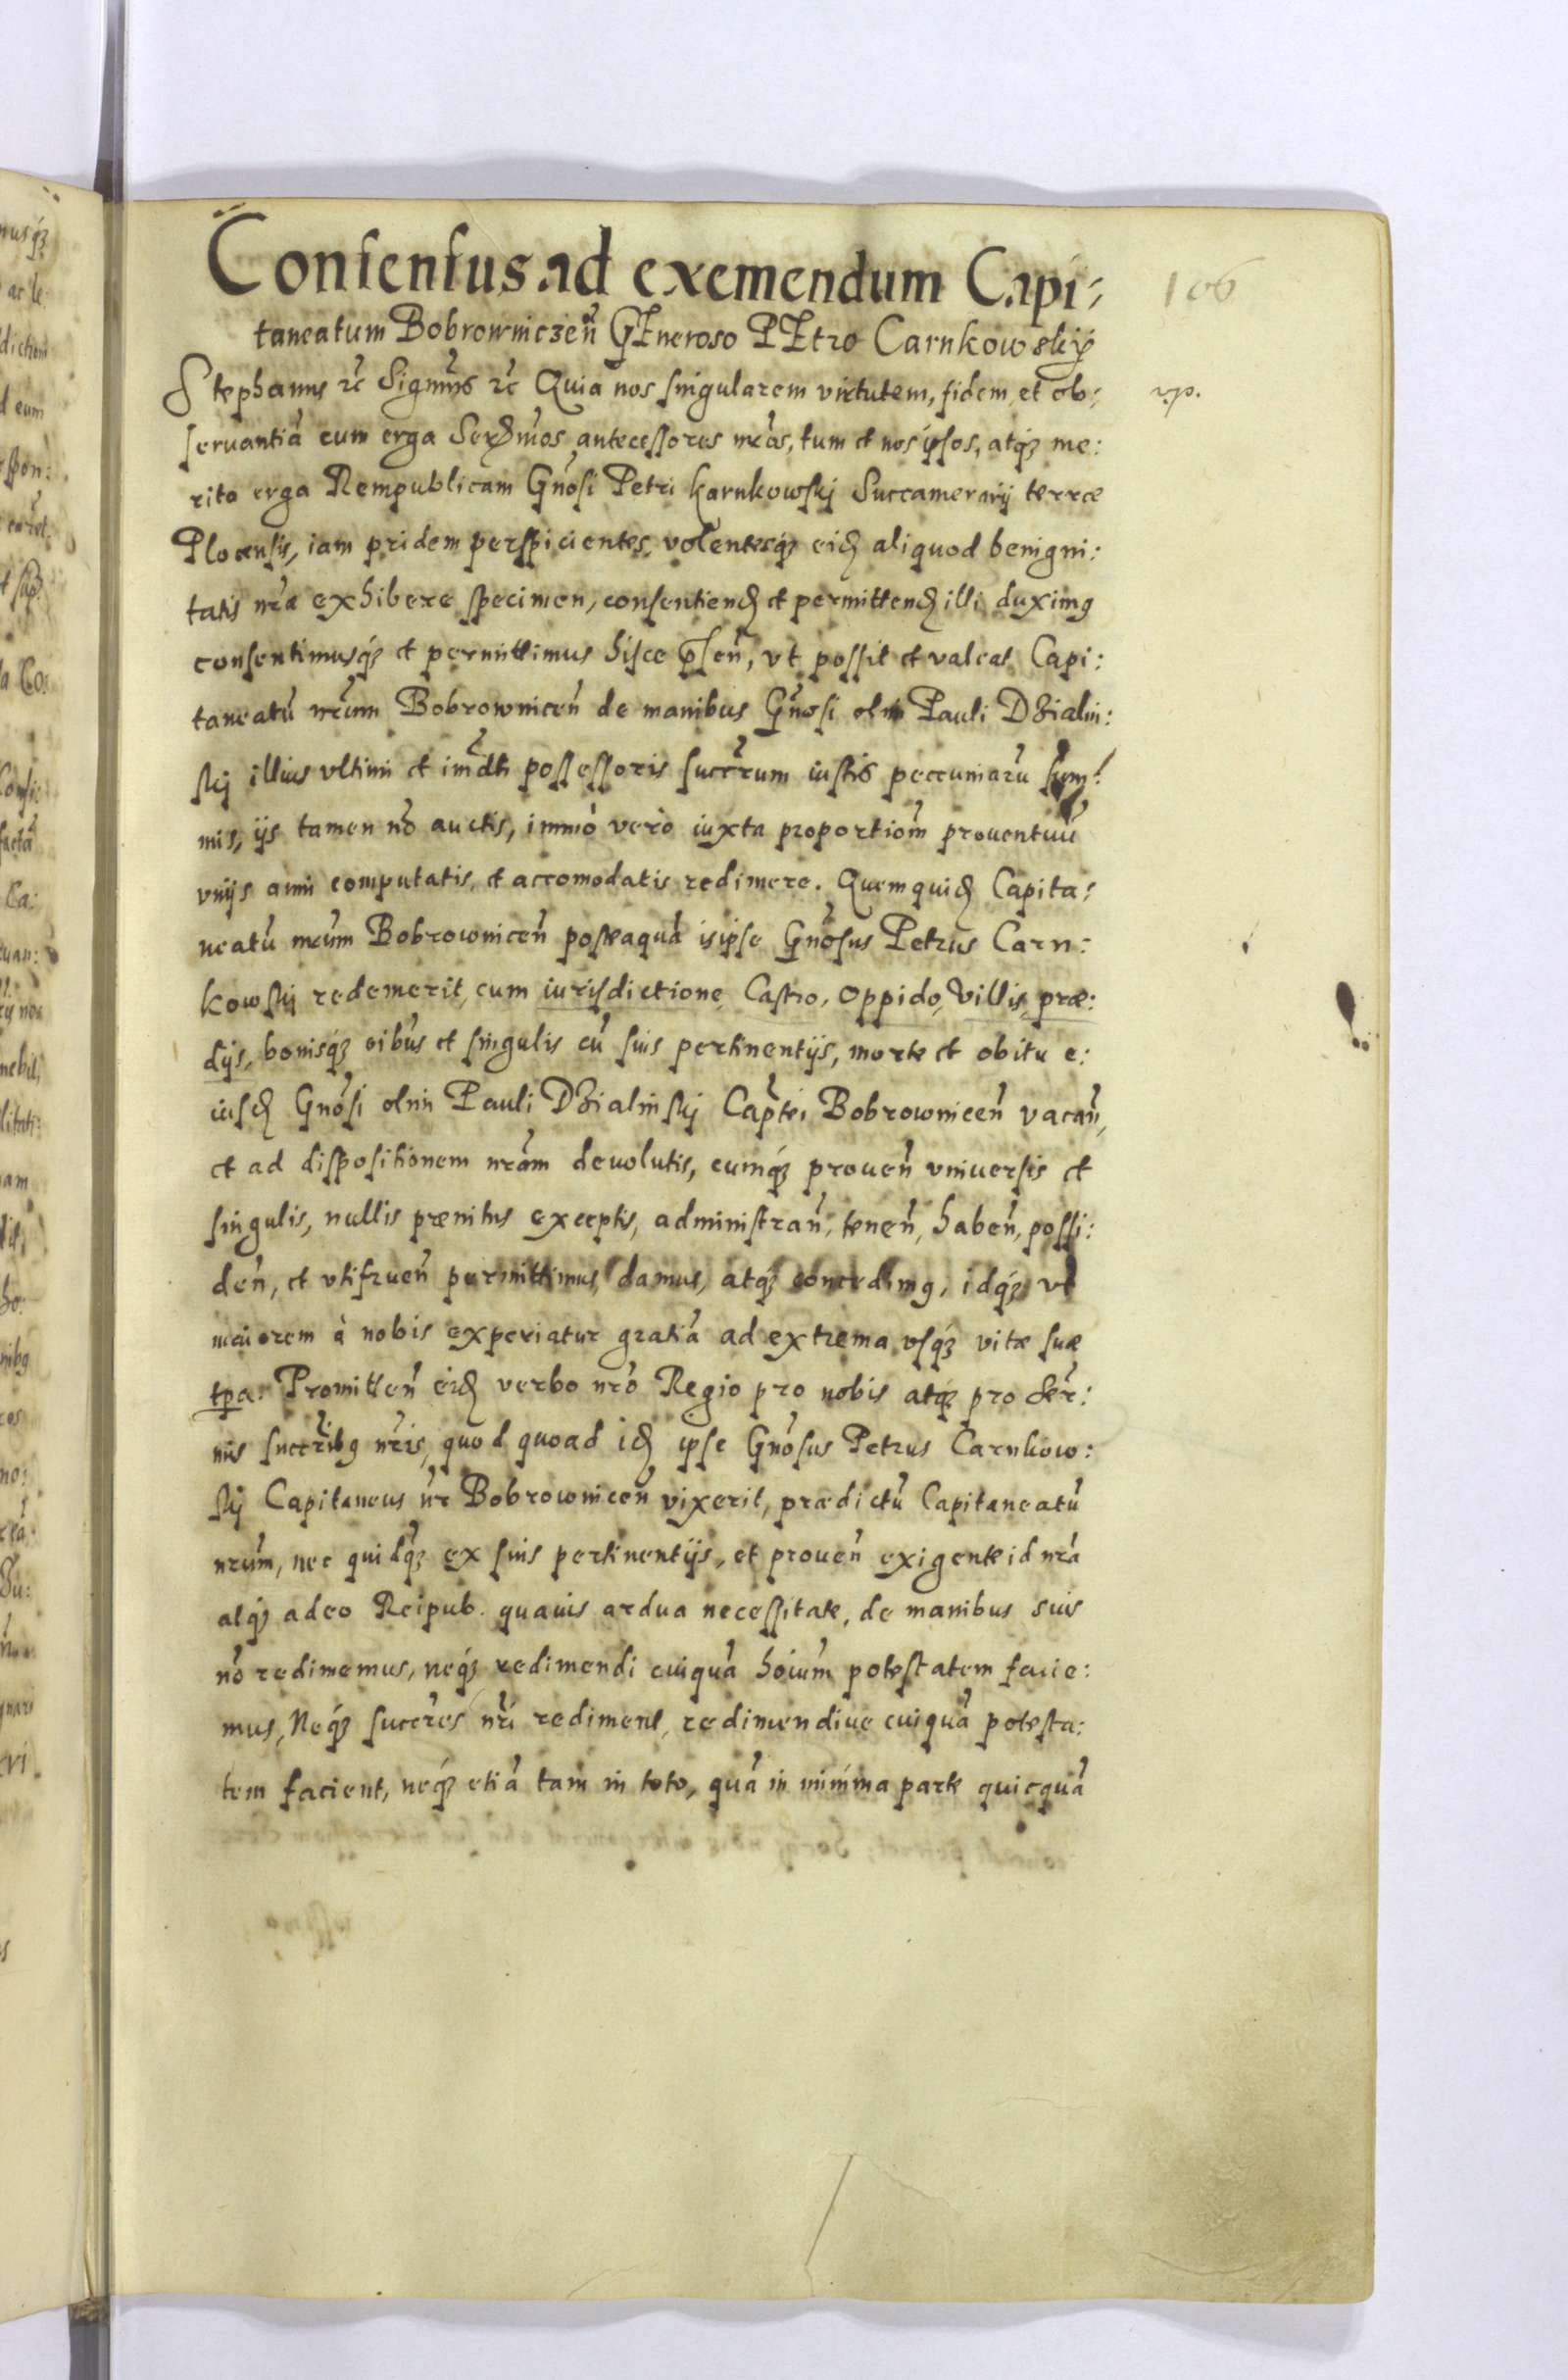 Consensus ad exemendum Capi:
taneatum Bobrowniczeñ GEneroso PEtro Carnkowskÿ
106
Stephanus etc Significamus etc Quia nos singularem virtutem, fidem, et ob:
seruantiã cum erga Seremos antecessores nrõs, tum et nos ipsos, atq; me:
rita erga Rempublicam Gnõsi Petri Karnkowskj Succamerarij terræ
Plocensis, iam pridem perspicientes, volentesq; eid aliquod benigni:
tatis nræ exhibere specimen, consentiend et permittend illi duximg
consentimusq; et permittimus hisce pñsen, vt possit et valeat Capi:
taneatũ nrũm Bobrowniceñ de manibus Gnõsi olim Pauli Dzialin:
skj illius vltimi et imẽdti possessoris succrum iustis peccuniarũ sum:
mis, ijs tamen nõ auctis, immò verò iuxta proportioñm prouentuũ
vniịs anni computatis, et accomodatis redimere. Quem quid Capita:
neatũ nrũm Bobrowniceñ posteaquã is ipse Gnõsus Petrus Carn:
kowskj redemerit, cum iurisdictione, Castro, Oppido, Villis, præ:
dijs, bonisq; oibus et singulis cũ suis pertinentijs, morte et obitu e:
iusd Gnõsi olim Pauli Dzialinskj Captei Bobrowniceñ vacañ,
et ad dispositionem nrãm deuolutis, cumq; proueñ vniuersis et
singulis, nullis pænitus exceptis, administrañ, teneñ, habeñ, possi:
deñ, et vtifrueñ permittimus, damus, atq; concedimg, idq; vt
maiorem à nobis experiatur gratiã ad extrema vsq; vitæ suæ
tpa. Promitteñ eid verbo nrõ Regio pro nobis atq; pro Ser:
mis succribg nris, quod quoad id ipse Gnõsus Petrus Carnkow:
skj Capitaneus nr Bobrowniceñ vixerit, prædictũ Capitaneatũ
nrũm, nec quidq; ex suis pertinentijs, et proueñ exigente id nrã
atq; adeo Reipub. quauis ardua necessitate, de manibus suis
nõ redimemus, neq; redimendi cuiquã hoium potestatem facie:
mus, Neq; succres nri rediment, redimendiue cuiquã potesta:
tem facient, neq; etiã tam in toto, quã in minima parte quicquã